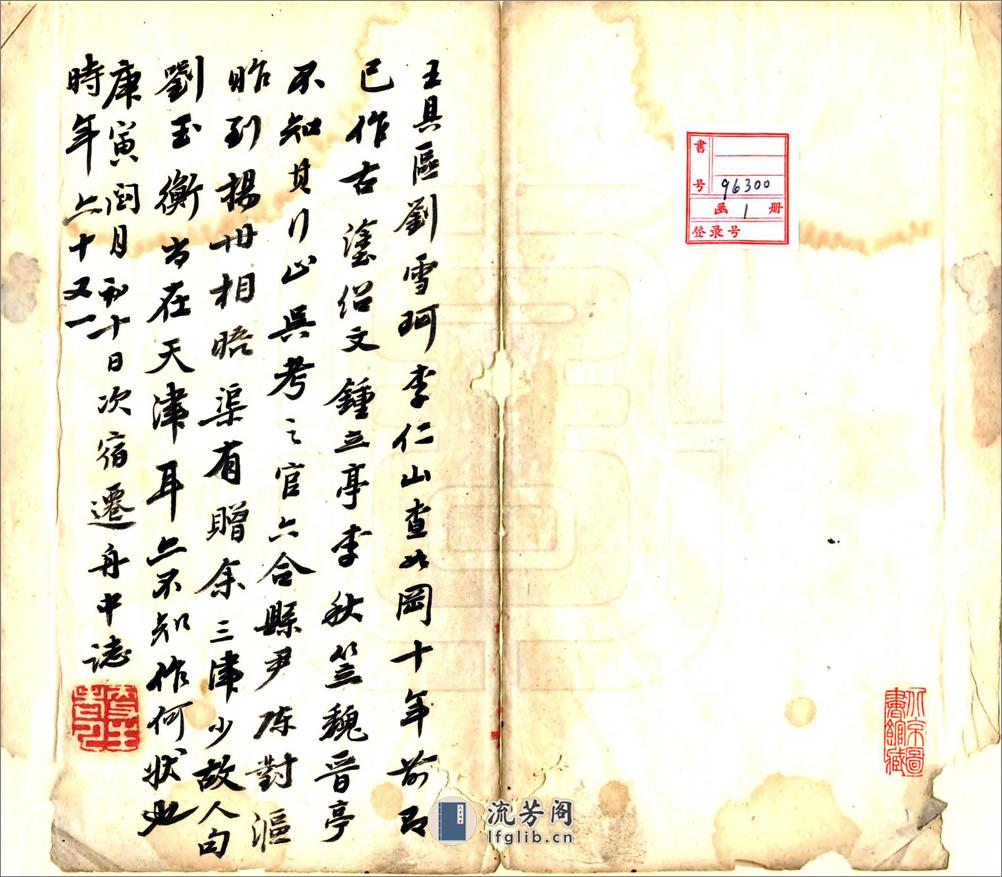 王具區劉雪珂李仁山查如岡十年前即
已作古塗紹文鍾立亭李秋笠魏晉亭
不知其行止吳考之官六合縣尹陈對漚
昨到楊州相晤渠有贈余三津少故人句
劉玉衡尚在天津耳亦不知作何狀也
庚寅閏月初十日次宿遷舟中誌
時年六十又一
书号 96300
函 1 册
登录号
北京圖書館藏
流芳阁
lfglib.cn